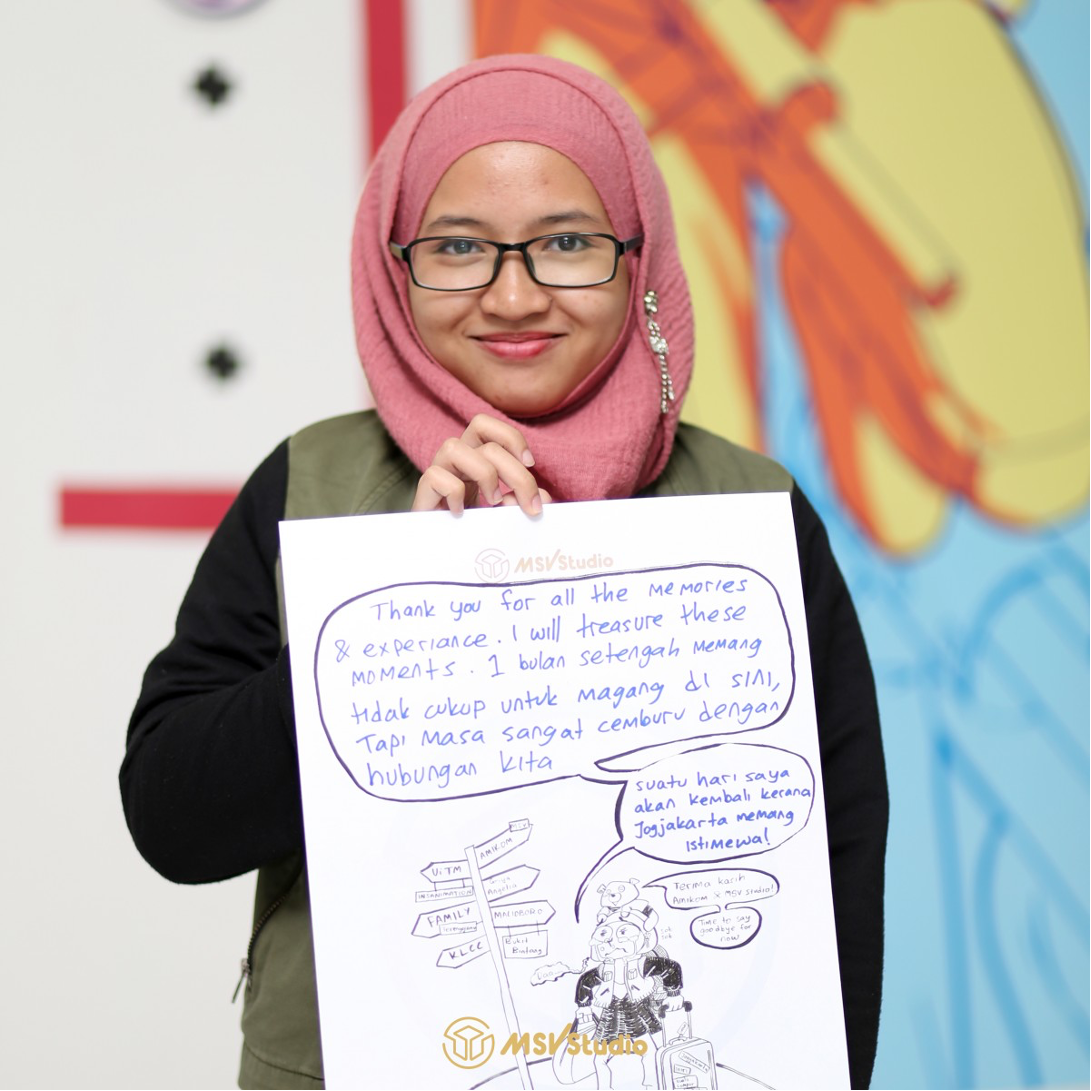 MSV Studio
Thank you for all the memories
& experiance. I will treasure these
moments. 1 bulan setengah memang
tidak cukup untuk magang di sini,
Tapi masa sangat cemburu dengan
hubungan kita
suatu hari saya
akan kembali kerana
Jogjakarta memang
istimewa!
AMIKOM
UiTM
Angelia
FAMILY
MALIOBORO
KLCC
Bukit
Bintang
Terima kasih
Amikom & MSV Studio!
Time to say
goodbye for
now
MSV Studio